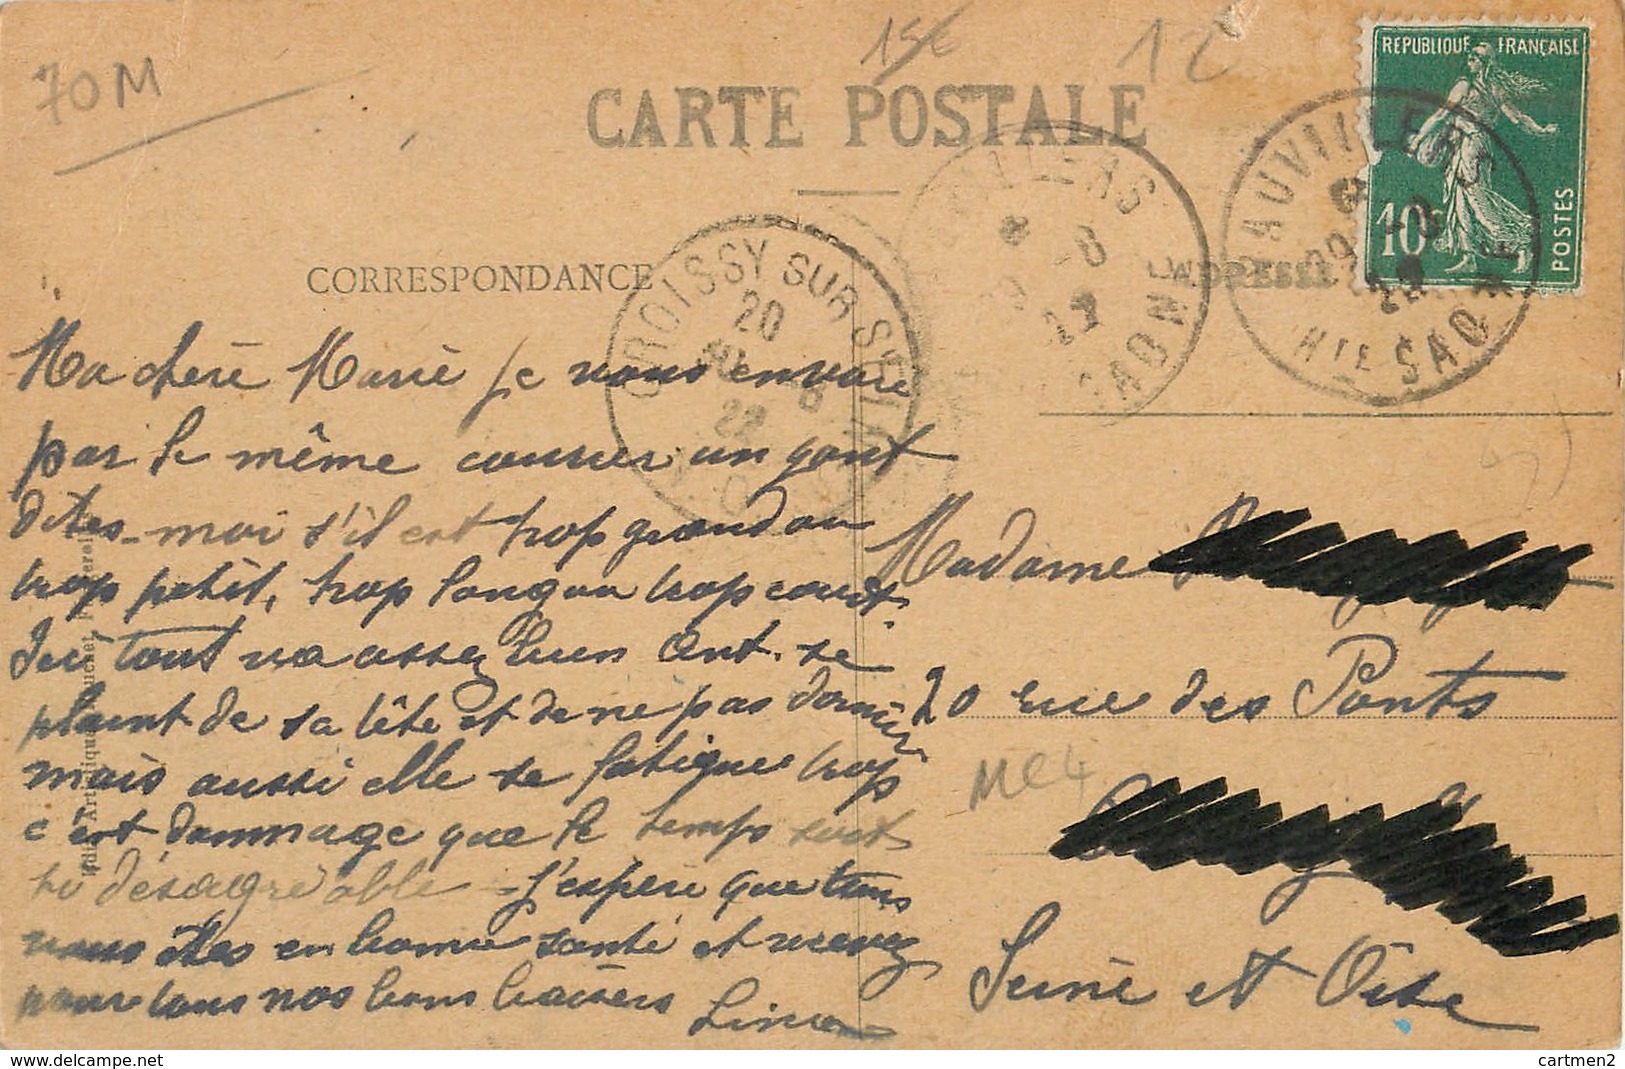 70M
15€
12
CARTE POSTALE
REPUBLIQUE FRANÇAISE
10c
POSTES
VAUVILLERS
20 -8
22
Hte SAONE
VILLERS
8
22
SAONE
CROISSY SUR SEINE
20
8
22
CORRESPONDANCE
ADRESSE
Ma chère Marie je vous envoie
par le même courrier un gant
dites-moi s'il est trop grand ou
trop petit, trop long ou trop court
Ici tout va assez bien Ant. se
plaint de sa tête et de ne pas dormir
mais aussi elle se fatigue trop
c'est dommage que le temps soit
si désagréable - J'espère que tous
vous êtes en bonne santé et recevez
pour tous nos bons baisers
Madame
20 rue des Ponts
Mc4
Seine et Oise
cartmen2